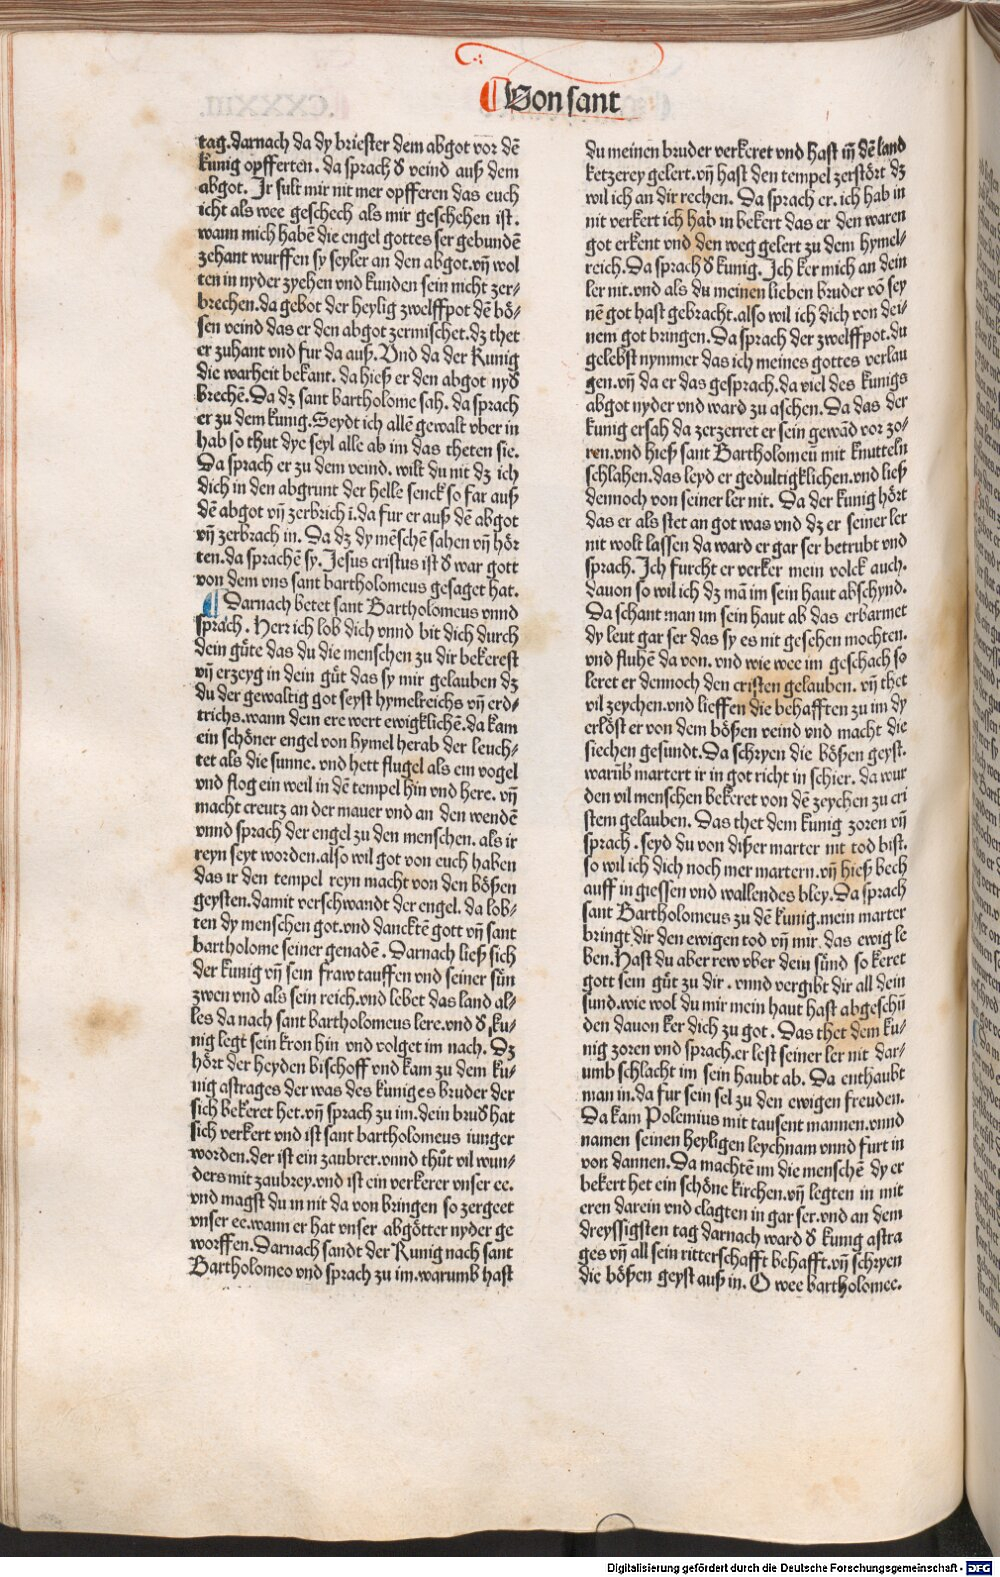 Von sant
tag. darnach da dy briester dem abgot vor dē
kunig opfferten. da sprach d̕ veind auß dem
abgot. Jr sult mir nit mer opfferen das euch
icht als wee geschech als mir geschehen ist.
wann mich habē die engel gottes ser gebundē
zehant wurffen sy seyler an den abgot. vn̄ wol
ten in nyder zyehen vnd kunden sein nicht zer⸗
brechen. da gebot der heylig zwelffpot dē bö⸗
sen veind das er den abgot zermischet. dz thet
er zuhant vnd fur da auß. Vnd da der Kunig
die warheit bekant. da hieß er den abgot nyd̕
brechē. Da dz sant bartholome sah. da sprach
er zu dem kunig. Seydt ich allē gewalt vber in
hab so thut dye seyl alle ab im das theten sie.
Da sprach er zu dem veind. wilt du nit dz ich
dich in den abgrunt der helle senck so far auß
dē abgot vn̄ zerbrich ī. da fur er auß dē abgot
vn̄ zerbrach in. Da dz dy mēschē sahen vn̄ hör
ten. da sprachē sy. Jesus cristus ist d̕ war gott
von dem vns sant bartholomeus gesaget hat.
¶ Darnach betet sant Bartholomeus vnnd
sprach. Herr ich lob dich vnnd bit dich durch
dein güte das du die menschen zu dir bekerest
vn̄ erzeyg in dein güt das sy mir gelauben dz
du der gewaltig got seyst hymelreichs vn̄ erd⸗
trichs. wann dein ere wert ewigklichē. da kam
ein schöner engel von hymel herab der leuch⸗
tet als die sunne. vnd hett flugel als ein vogel
vnd flog ein weil in dē tempel hin vnd here. vn̄
macht creutz an der mauer vnd an den wendē
vnnd sprach der engel zu den menschen. als ir
reyn seyt worden. also wil got von euch haben
das ir den tempel reyn macht von den bößen
geysten. damit verschwandt der engel. da lob⸗
ten dy menschen got. vnd dancktē gott vn̄ sant
bartholome seiner genadē. Darnach ließ sich
der kunig vn̄ sein fraw tauffen vnd seiner sün
zwen vnd als sein reich. vnd lebet das land al⸗
les da nach sant bartholomeus lere. vnd d̕ ku⸗
nig legt sein kron hin vnd volget im nach. Dz
hört der heyden bischoff vnd kam zu dem ku⸗
nig astrages der was des kuniges bruder der
sich bekeret het. vn̄ sprach zu im. dein brud̕ hat
sich verkert vnd ist sant bartholomeus iunger
worden. der ist ein zaubrer. vnnd thůt vil wun⸗
ders mit zaubrey. vnd ist ein verkerer vnser ee.
vnd magst du in nit da von bringen so zergeet
vnser ee. wann er hat vnser abgötter nyder ge
worffen. Darnach sandt der Kunig nach sant
Bartholomeo vnd sprach zu im. warumb hast
du meinen bruder verkeret vnd hast in dē land
ketzerey gelert. vn̄ hast den tempel zerstört dz
wil ich an dir rechen. Da sprach er. ich hab in
nit verkert ich hab in bekert das er den waren
got erkent vnd den weg gelert zu dem hymel⸗
reich. Da sprach d̕ kunig. Jch ker mich an dein
ler nit. vnd als du meinen lieben bruder vō sey
nē got hast gebracht. also wil ich dich von dei⸗
nem got bringen. Da sprach der zwelffpot. du
gelebst nymmer das ich meines gottes verlau
gen. vn̄ da er das gesprach. da viel des kunigs
abgot nyder vnd ward zu aschen. Da das der
kunig ersah da zerzerret er sein gewād vor zo⸗
ren. vnd hieß sant Bartholomeū mit knutteln
schlahen. das leyd er gedultigklichen. vnd ließ
dennoch von seiner ler nit. Da der kunig hört
das er als stet an got was vnd dz er seiner ler
nit wolt lassen da ward er gar ser betrubt vnd
sprach. Jch furcht er verker mein volck auch.
dauon so wil ich dz mā im sein haut abschynd.
Da schant man im sein haut ab das erbarmet
dy leut gar ser das sy es nit gesehen mochten.
vnd fluhē da von. vnd wie wee im geschach so
leret er dennoch den cristen gelauben. vn̄ thet
vil zeychen. vnd lieffen die behafften zu im dy
erlöst er von dem bößen veind vnd macht die
siechen gesundt. Da schryen die bößen geyst.
warūb martert ir in got richt in schier. da wur
den vil menschen bekeret von dē zeychen zu cri
stem gelauben. Das thet dem kunig zoren vn̄
sprach. seyd du von dißer marter nit tod bist.
so wil ich dich noch mer martern. vn̄ hieß bech
auff in giessen vnd wallendes bley. Da sprach
sant Bartholomeus zu dē kunig. mein marter
bringt dir den ewigen tod vn̄ mir das ewig le
ben. Hast du aber rew vber dein sünd so keret
gott sein güt zu dir. vnnd vergibt dir all dein
sund. wie wol du mir mein haut hast abgeschū
den dauon ker dich zu got. Das thet dem ku⸗
nig zoren vnd sprach. er lest seiner ler nit dar⸗
umb schlacht im sein haubt ab. Da enthaubt
man in. da fur sein sel zu den ewigen freuden.
Da kam Polemius mit tausent mannen. vnnd
namen seinen heyligen leychnam vnnd furt in
von dannen. Da machtē im die menschē dy er
bekert het ein schöne kirchen. vn̄ legten in mit
eren darein vnd clagten in gar ser. vnd an dem
dreyssigsten tag darnach ward d̕ kunig astra
ges vn̄ all sein ritterschafft behafft. vn̄ schryen
die bößen geyst auß in. O wee bartholomee.
Digitalisierung gefördert durch die Deutsche Forschungsgemeinschaft - DFG